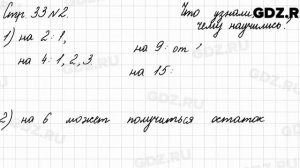 Стр 33 №2.
Что узнали,
чему научились?
1) на 2: 1,
на 4: 1, 2, 3.
на 9: от 1
на 15:
2) на 6 может получиться остаток
GDZ.RU